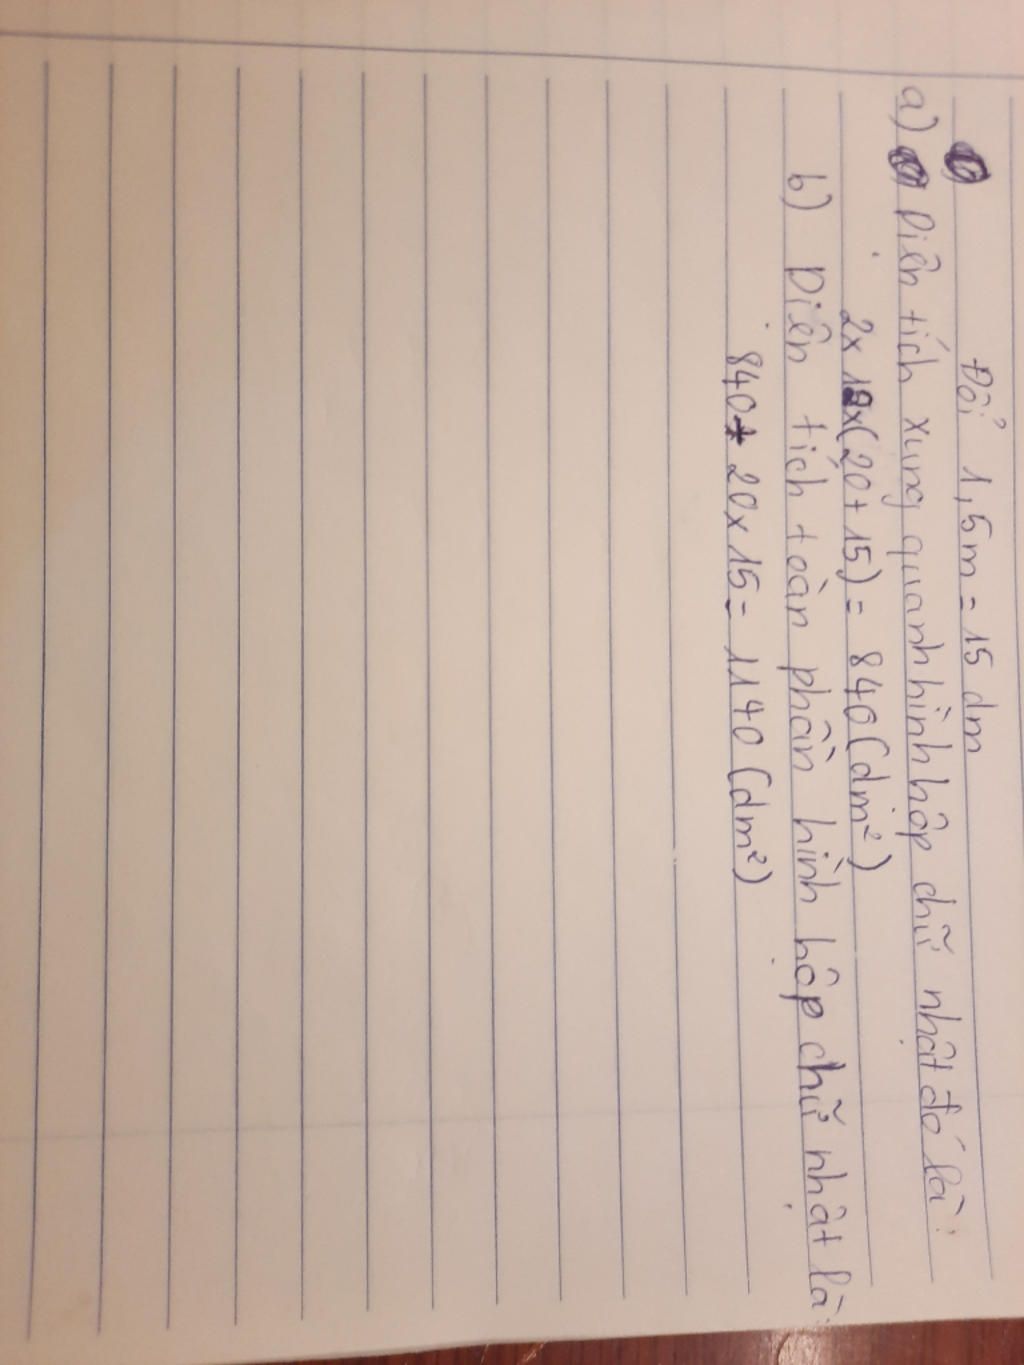 Đổi 1,5m = 15 dm
a) Diện tích xung quanh hình hộp chữ nhật đó là:
2 x 12 x (20 + 15) = 840 (dm²)
b) Diện tích toàn phần hình hộp chữ nhật là:
840 + 20 x 15 = 1140 (dm²)